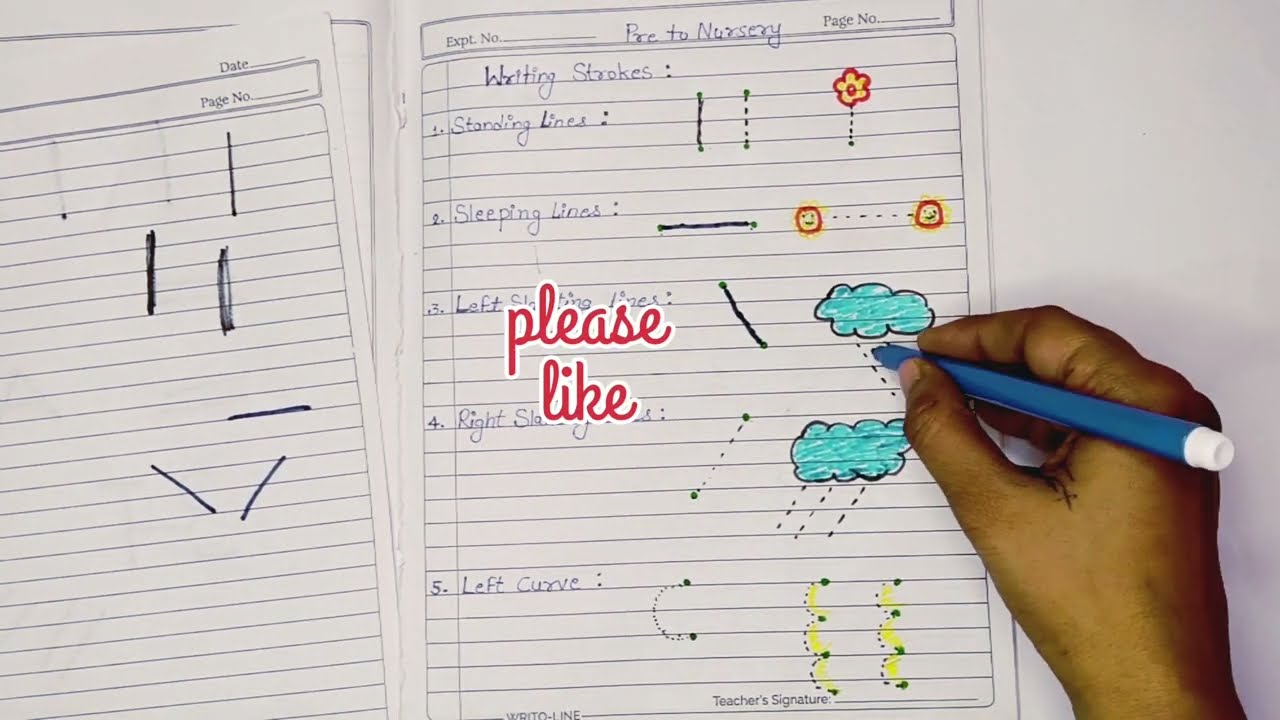 Date
Page No.
Expt. No.
Pre to Nursery
Page No.
Writing Strokes :
1. Standing Lines :
2. Sleeping Lines :
3. Left Slanting Lines :
please
like
4. Right Slanting Lines :
5. Left Curve :
Teacher's Signature:
WRITO-LINE